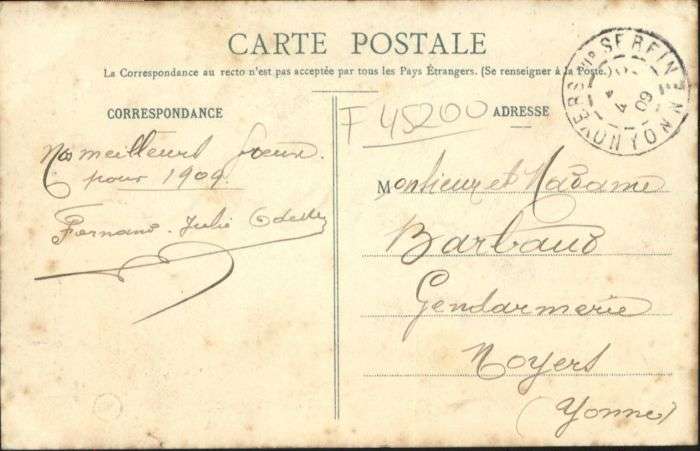 CARTE POSTALE
La Correspondance au recto n'est pas acceptée par tous les Pays Étrangers. (Se renseigner à la Poste.)
CORRESPONDANCE
Nos meilleurs Voeux
pour 1909.
Fernand. Julie Odette
F 45200
ADRESSE
Monsieur et Madame
Barbaud
Gendarmerie
Noyers
(Yonne)
NOYERS SUR SEREIN
4 09
YONNE